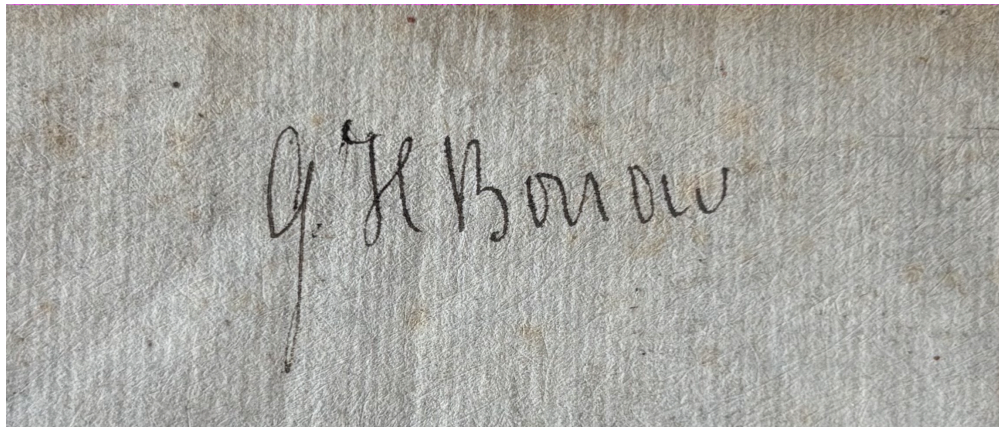 G. H Borrow